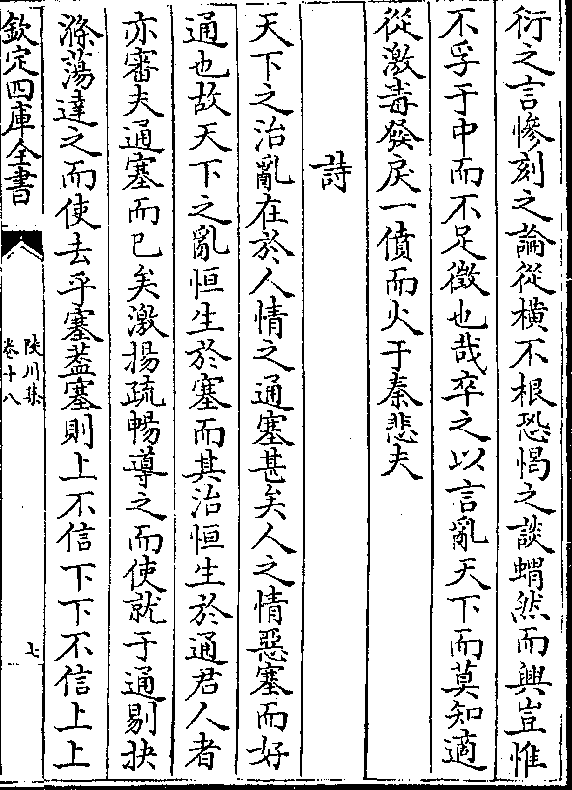 衍之言慘刻之論從横不根恐愒之談蝟然而興豈惟
不孚于中而不足徵也哉卒之以言亂天下而莫知適
從激毒發戾一僨而火于秦悲夫
詩
天下之治亂在於人情之通塞甚矣人之情惡塞而好
通也故天下之亂恒生於塞而其治恒生於通君人者
亦審夫通塞而已矣激揚疏暢導之而使就于通剔抉
滌蕩達之而使去乎塞葢塞則上不信下下不信上上
欽定四庫全書
陵川集
卷十八
七